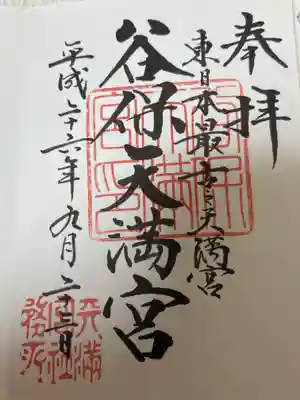 奉拝
東日本最古之天満宮
谷保天満宮
平成二十六年九月二十三日
天満
宮社
務所